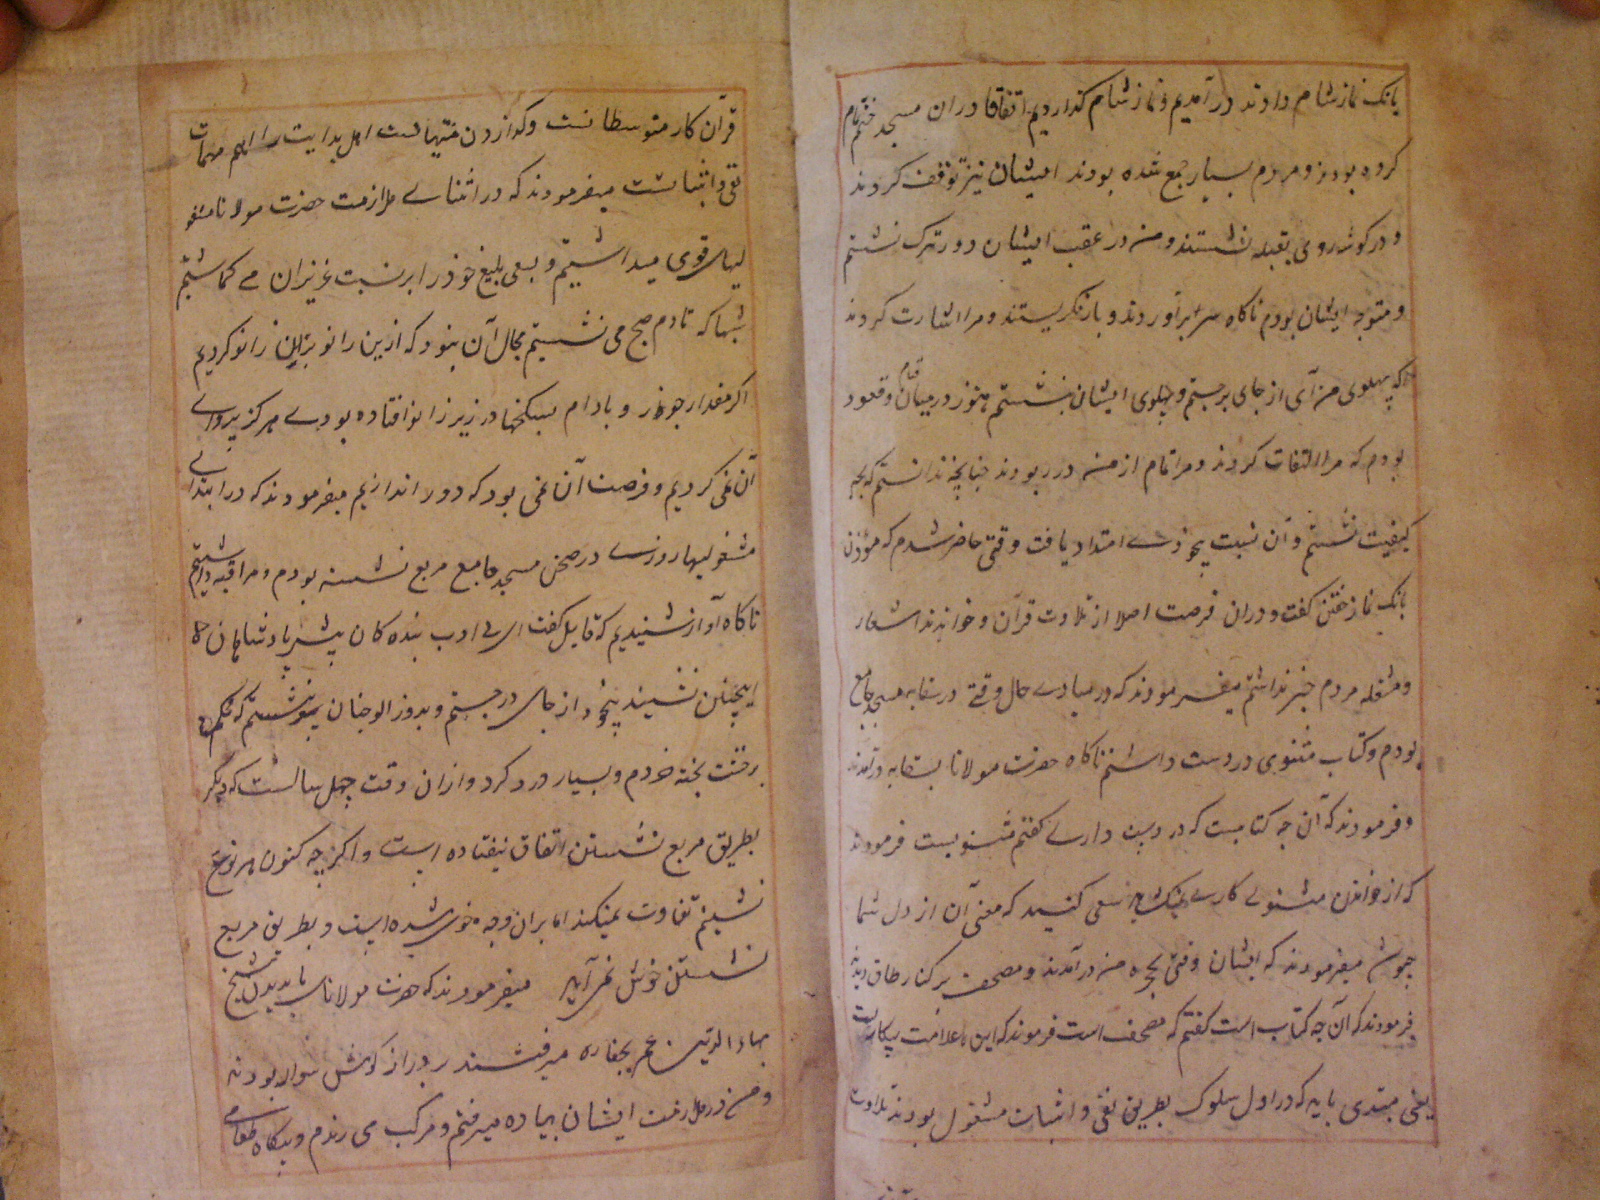 بانک نماز شام دادند در آمدیم و نماز شام کذاردیم اتفاقا دران مسجد ختم تمام
کرده بودند و مردم بسیار جمع شده بودند ایشان نیز توقف کردند
و در کوشه روی بقبله نشستند و من در عقب ایشان دورترک نشستم
و متوجه ایشان بودم ناکاه سر برآوردند و باز نکریستند و مرا اشارت کردند
که پهلوی من آی از جای برجستم و پهلوی ایشان بنشستم هنوز در میان قیام و قعود
بودم که مرا التفات کردند و مرا تمام از من در ربودند چنانچه ندانستم که بچه
کیفیت نشستم و آن نسبت بیخودی امتداد یافت وقتی حاضر شدم که مؤذن
بانک نماز خفتن کفت و دران فرصت اصلا از تلاوت قرآن و خواندن اشعار
و مشغله مردم خبر نداشتم میفرمودند که در مبادی حال وقتی در سقایه مسجد جامع
بودم و کتاب مثنوی در دست داشتم ناکاه حضرت مولانا بسقایه درآمدند
و فرمودند که آن چه کتابست که در دست داری کفتم مثنویست فرمودند
که از خواندن مثنوی کاری نمیکشاید سعی کنید که معنی آن از دل شما
جوشد میفرمودند که ایشان وقتی بحجره من درآمدند و مصحف بر کنار طاق دیدند
فرمودند که آن چه کتاب است کفتم که مصحف است فرمودند که این علامت بیکاریست
یعنی مبتدی باید که در اول سلوک بطریق نفی و اثبات مشغول بود زیرا که تلاوت
قرآن کار متوسطانست و کذاردن منتهیانست اهل بدایت را اهم مهمات
نفی و اثباتست میفرمودند که در اثنای ملازمت حضرت مولانا مشغو
لیهای قوی میداشتیم و بسعی بلیغ خود را بر نسبت عزیزان می کماشتم
شبها که تا دم صبح می نشستیم مجال آن نبود که ازین زانو بران زانو کردیم
اکر مقدار جوز و بادام سنکها در زیر زانو افتاده بودی هرکز پروای
آن نمی کردیم و فرصت آن نمی بود که دور اندازیم میفرمودند که در ابتدای
مشغولیها روزی در صحن مسجد جامع مربع نشسته بودم و مراقبه داشتم
ناکاه آواز شنیدیم که قایل کفت ای بی ادب بنده کان پیش پادشاهان
اینچنین نشینند بیخود از جای درجستم و بدو زانو چنان نشستم که
برخشت پخته خوردم و بسیار درد کرد و ازان وقت چهل سالست که دیکر
بطریق مربع نشستن اتفاق نیفتاده است و اکرچه کنون هر نوع
نشینم تفاوت نمیکند اما بران وجه خوی شده است و بطریق مربع
نشستن خوش نمی آید میفرمودند که حضرت مولانا بدیدن شیخ
بهاء الدین عمر بجغاره میرفتند بر درازکوش سوار بودند
و من در ملازمت ایشان پیاده میرفتم و مرکب می راندم و بیکاه طعامی